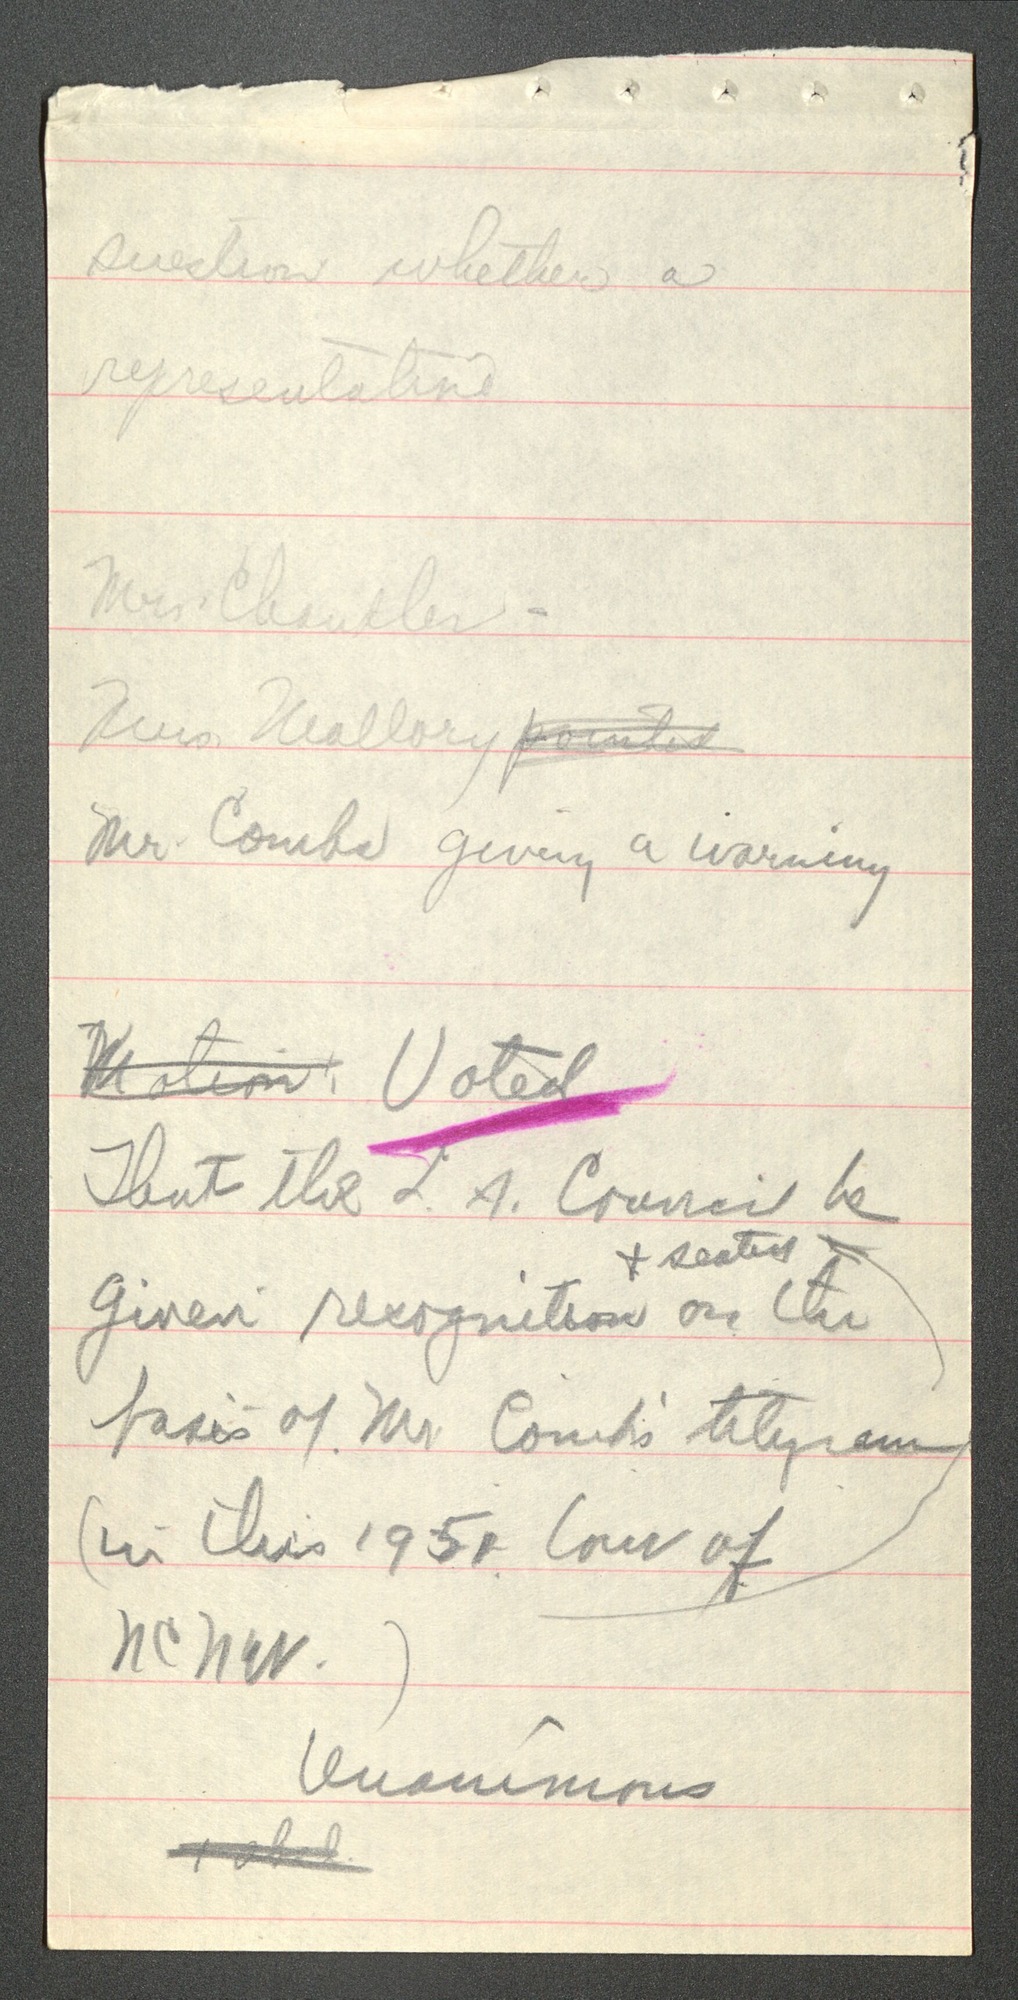 question whether a
representative
Mrs. Chandler -
Mrs. Mallory pointed
Mr. Combs giving a warning
Motion: Voted
That the L. A. Council be
+ seated
given recognition on the
basis of Mr Comb's telegram
(in this 1950 Conv of
NCNW. )
Unanimous